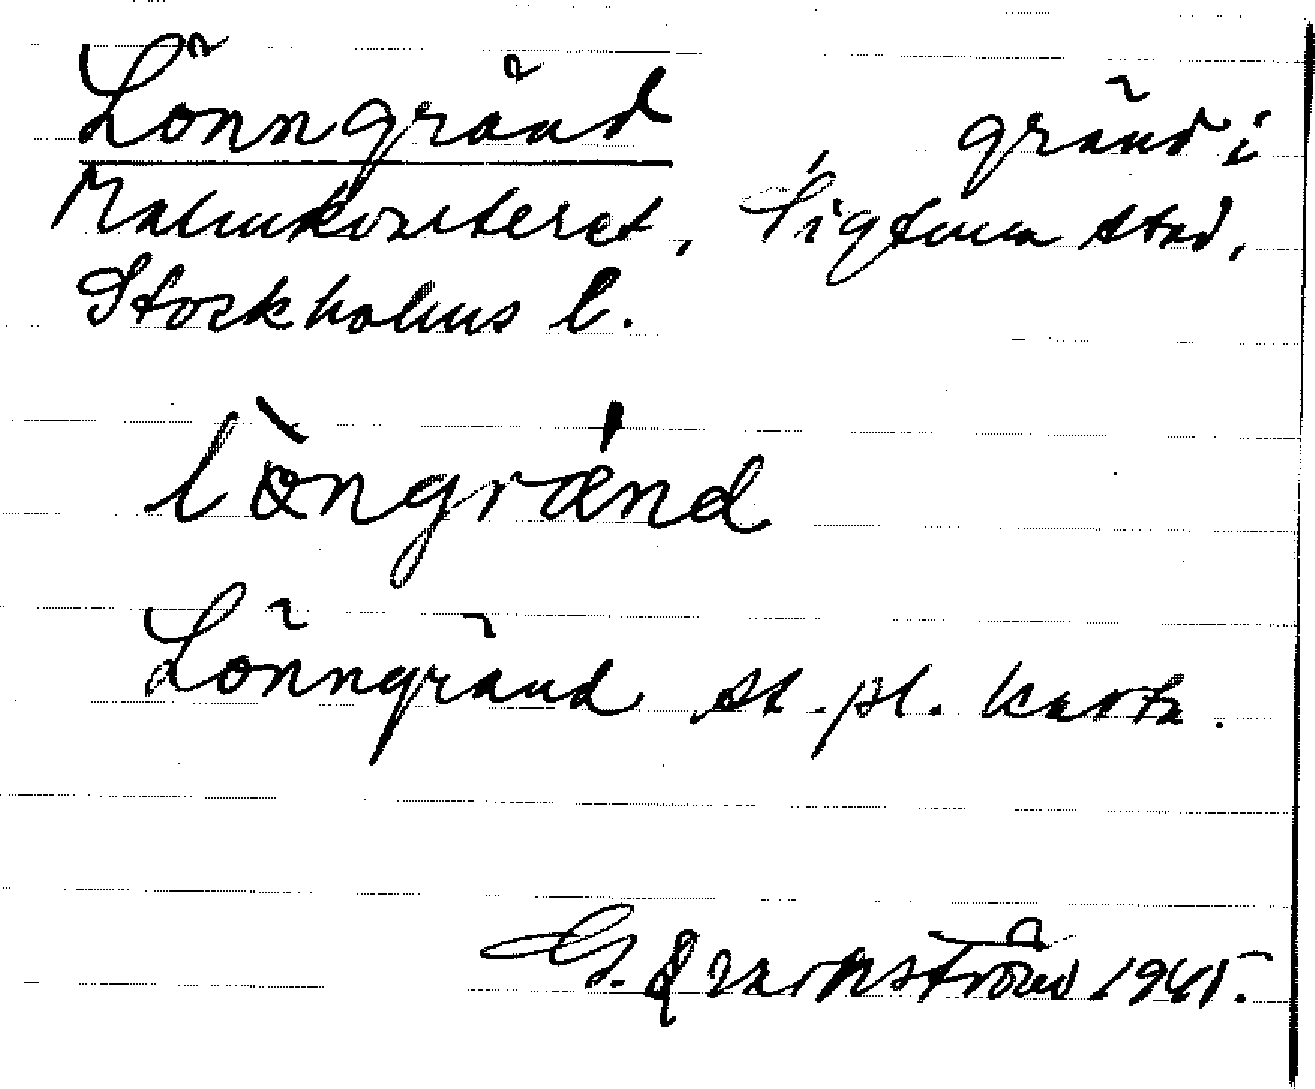 Lönngränd gränd i
Malmkvarteret, Sigtuna stad,
Stockholms l.
lö̀ngrǽnd
Lönngränd st. pl. karta.
G. Qvarnström 1945.